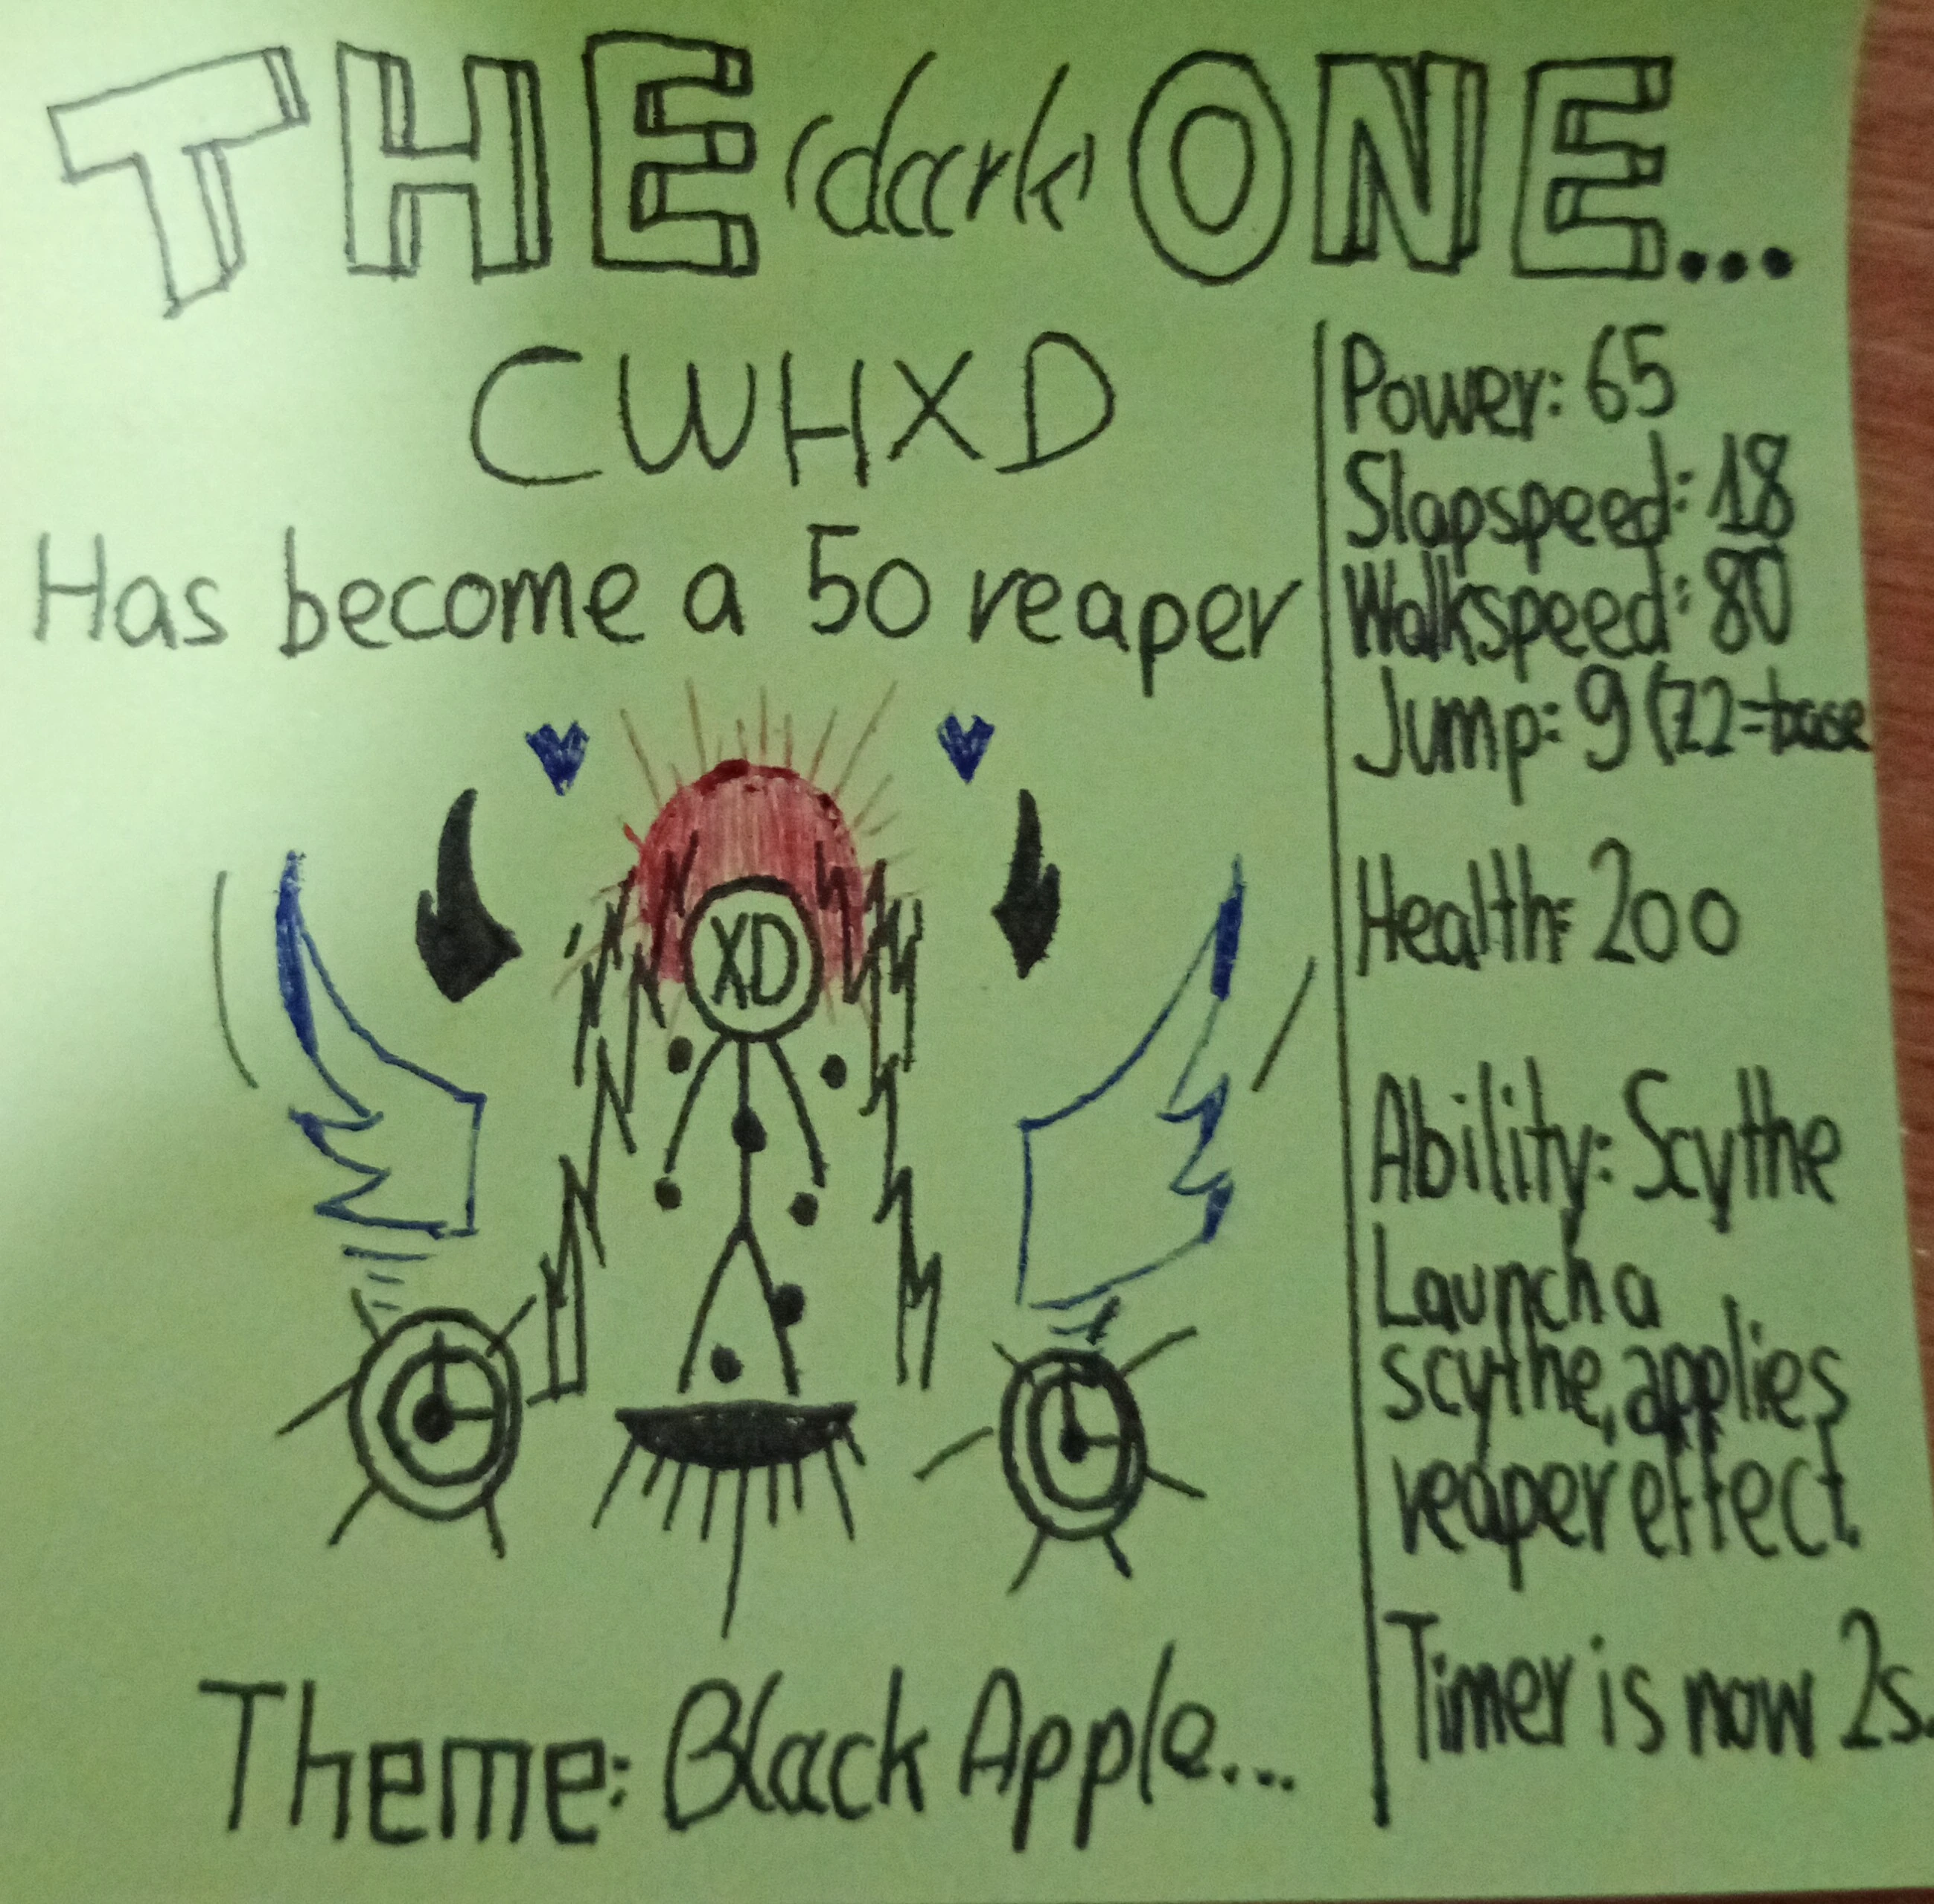 THE (dark) ONE...
CWHXD
Has become a 50 reaper
XD
Theme: Black Apple...
Power: 65
Slapspeed: 18
Walkspeed: 80
Jump: 9 (7.2=base
Health: 200
Ability: Scythe
Launch a
scythe, applies
reaper effect.
Timer is now 2s.